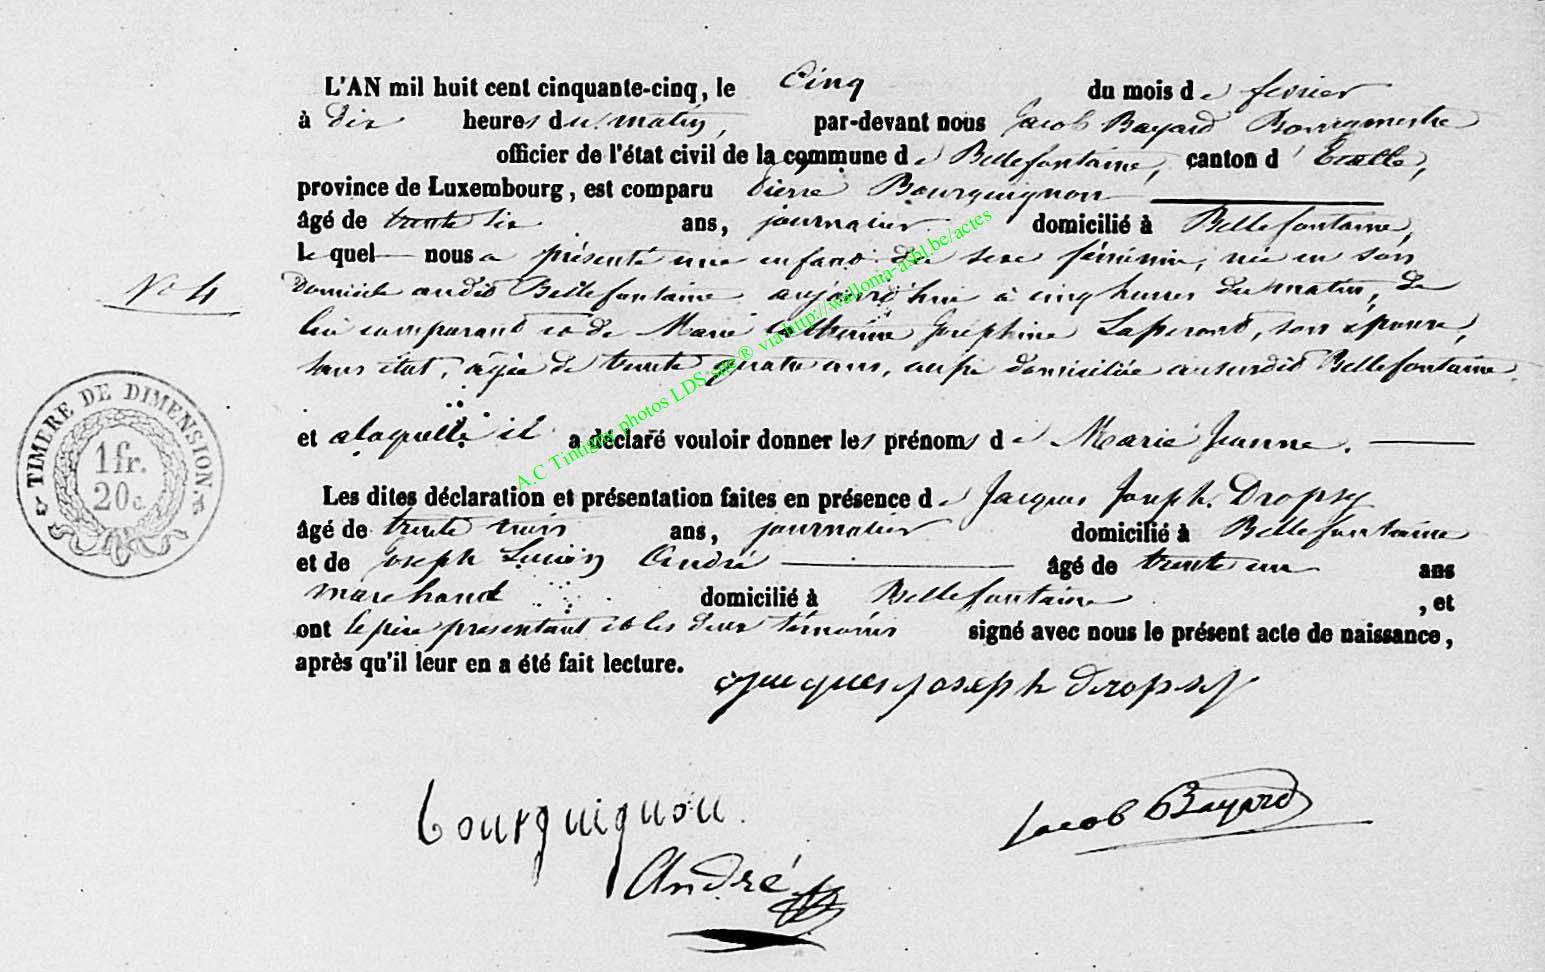 L'AN mil huit cent cinquante-cinq, le Cinq du mois de février
à Dix heures du matin, par-devant nous Jacob Bayard Bourgmestre
officier de l'état civil de la commune de Bellefontaine, canton d'Etalle,
province de Luxembourg, est comparu Pierre Bourguignon
âgé de trente six ans, journalier domicilié à Bellefontaine,
Le quel nous a présenté une enfant du sexe féminin, née en son
N° 4
domicile audit Bellefontaine aujourd'hui à cinq heures du matin, de
lui comparant et de Marie Catherine Joséphine Laperond, son épouse,
sans état, agée de trente quatre ans, aussi domiciliée au susdit Bellefontaine.
et a laquelle il a déclaré vouloir donner les prénoms de Marie Jeanne.
TIMBRE DE DIMENSION.
1 fr.
20 c.
Les dites déclaration et présentation faites en présence de Jacques Joseph Dropsy
âgé de trente trois ans, journalier domicilié à Bellefontaine
et de Joseph Lucien André âgé de trente un ans
marchand domicilié à Bellefontaine, et
ont le père présentant et les deux témoins signé avec nous le présent acte de naissance,
après qu'il leur en a été fait lecture.
Jacques joseph dropsy
bourguignon.
Jacob Bayard
André
A.C Tintigny photos LDS sur ® via http://wallonia-asbl.be/actes